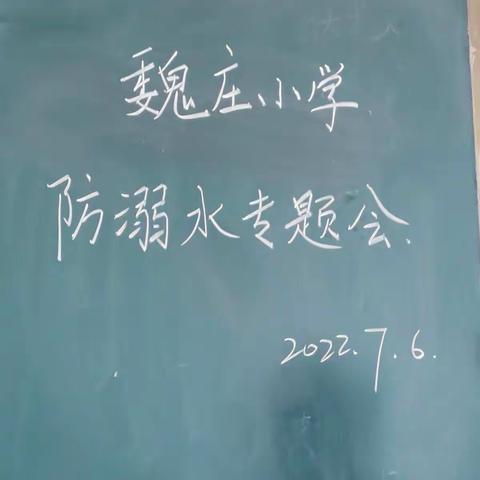 魏庄小学
防溺水专题会.
2022.7.6.